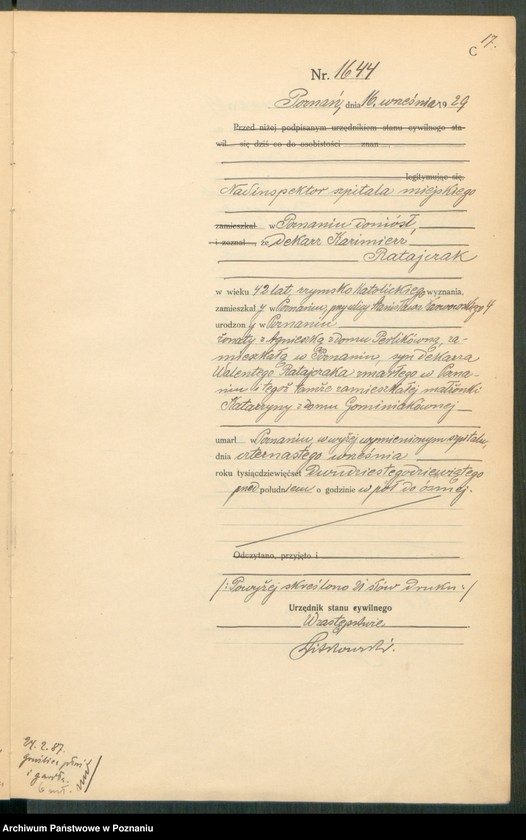 17.
C
Nr. 1644
Poznań, dnia 16. września 1929
Przed niżej podpisanym urzędnikiem stanu cywilnego sta-
wił się dziś co do osobistości znan
legitymując się,
Nadinspektor szpitala miejskiego
zamieszkał w Poznaniu doniósł,
i zeznał, że dekarz Kazimierz
Ratajczak
w wieku 42 lat, rzymsko katolickiego wyznania,
zamieszkały w Poznaniu, przy ulicy Stanisława 4
urodzony w Poznaniu
żonaty z Agnieszką z domu Perlikówną, za-
mieszkałą w Poznaniu, syn dekarza
Walentego Ratajczaka zmarłego w Pozna-
niu i tegoż tamże zamieszkałej małżonki
Katarzyny z domu Gominiakównej
umarł w Poznaniu w wyżej wymienionym szpitalu,
dnia czternastego września
roku tysiącdziewięćset dwudziestegodziewiątego
przed południem o godzinie w pół do ósmej.
Odczytano, przyjęto i
/: Powyżej skreślono 21 słów druku :/
Urzędnik stanu cywilnego
W zastępstwie
24. 2. 87.
i gardła.
Archiwum Państwowe w Poznaniu